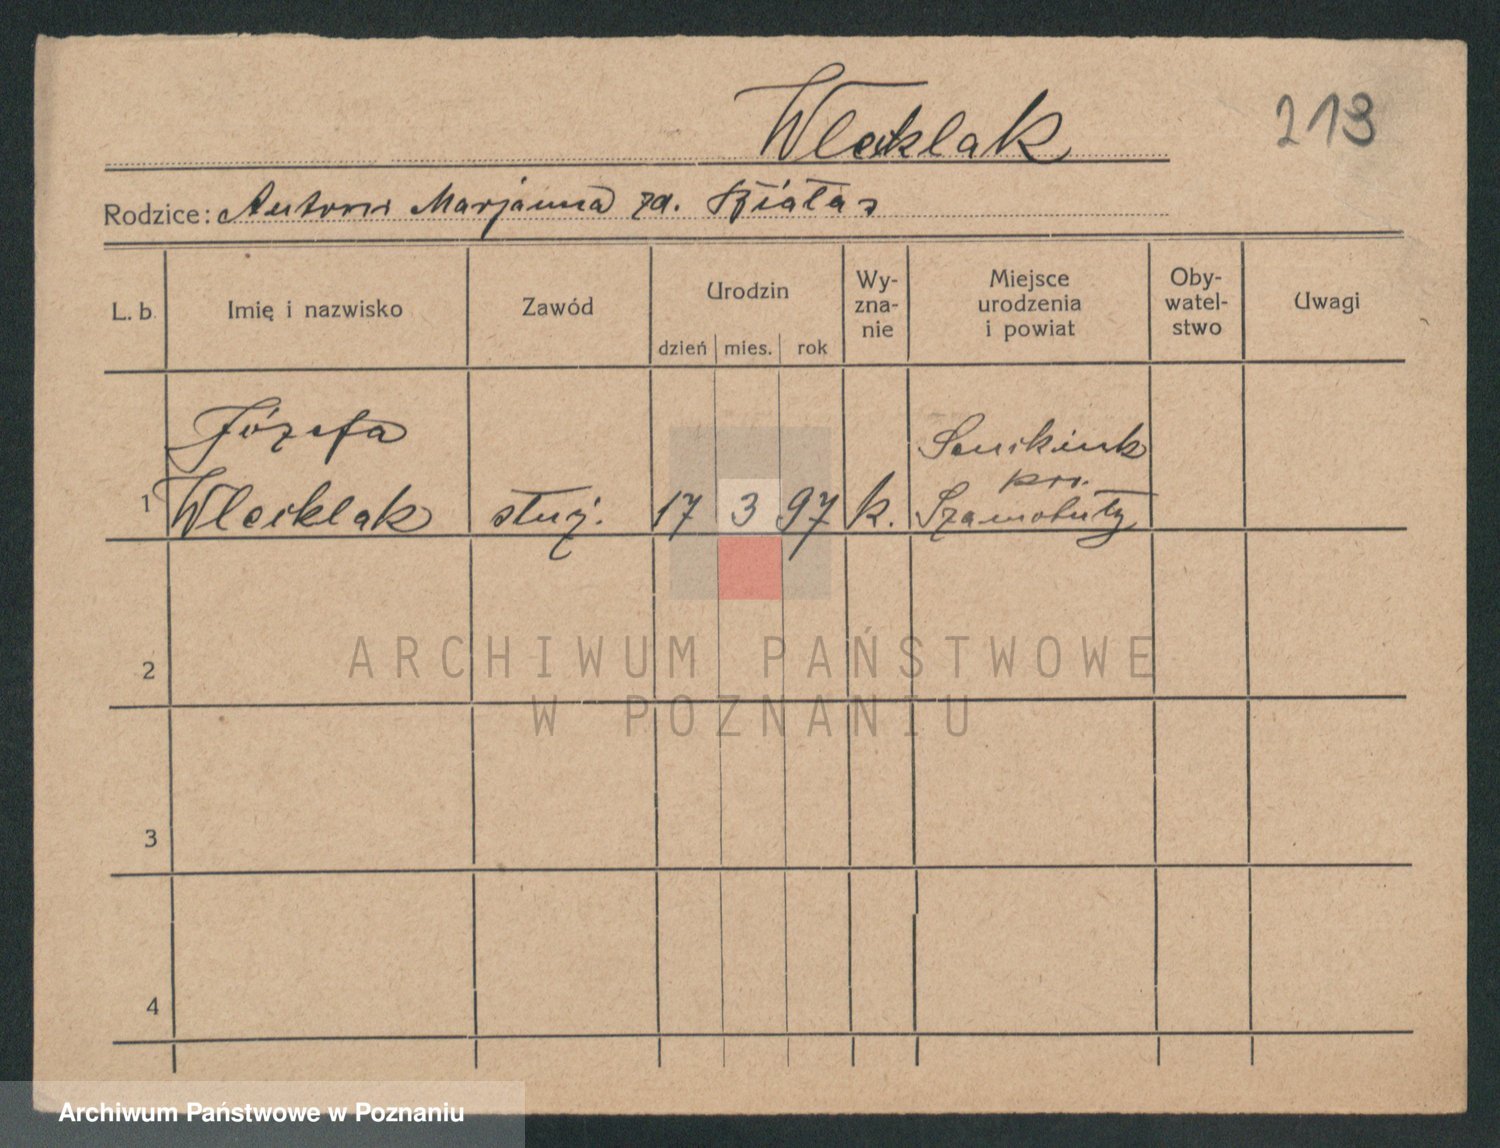 Wleklak
213
Rodzice: Antoni Marjanna zd. Białas
L. b. Imię i nazwisko Zawód Urodzin dzień mies. rok Wy-zna-nie Miejsce urodzenia i powiat Oby-watel-stwo Uwagi
Józefa
1 Wleklak służ. 17 3 97 k.
pow.
Szamotuły
2
3
4
ARCHIWUM PAŃSTWOWE
W POZNANIU
Archiwum Państwowe w Poznaniu